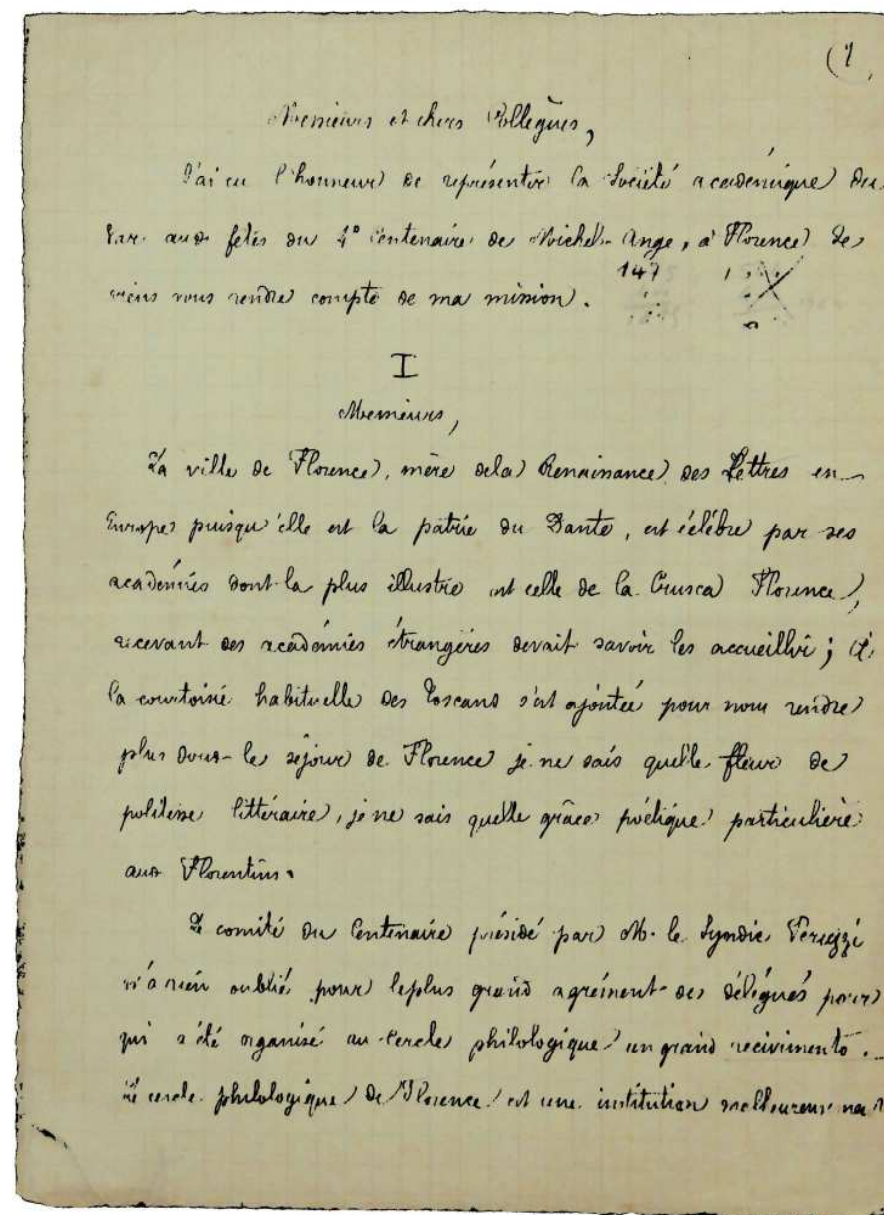 (1
Messieurs et chers Collègues,
J'ai eu l'honneur de représenter la Société académique du
Var aux fêtes du 4e Centenaire de Michel-Ange, à Florence Je
viens vous rendre compte de ma mission.
147
I
Messieurs,
La ville de Florence, mère dela Renaissance des Lettres en
Europe puisqu'elle est la patrie du Dante, est célèbre par ses
académies dont la plus illustre est celle de la Crusca Florence,
recevant des académies étrangères devait savoir les accueillir; à
la courtoisie habituelle des Toscans s'est ajoutée pour nous rendre
plus doux le séjour de Florence je ne sais quelle fleur de
politesse littéraire, je ne sais quelle grâce poétique particulière
aux Florentins.
Le comité du Centenaire présidé par M. le Syndic Peruzzi
n'a rien oublié pour leplus grand agrément des délégués pour
qui a été organisé au Cercle philologique un grand recivimento.
Le cercle philologique de Florence est une institution malheureuse